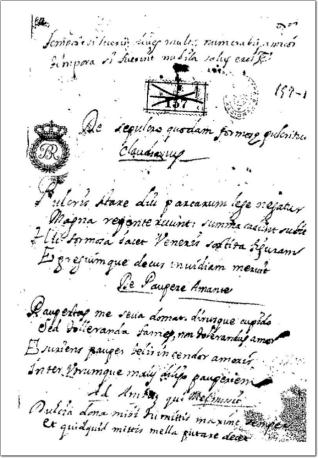 fueris multos numerabis amicos
tempora si fuerint nubila solus eris
157-1
137
BR
De sepulcro quodam formosę
Claudianus
Pulcris stare diu parcarum lege negatur
Magna repente ruunt summa cadunt
Hic formosa iacet Veneris sortita figuram
Egregiumque decus invidiam meruit
De Paupere Amante
Paupertas me seva domat dirusque cupido
Sed tolleranda fames, non tollerandus amor
Esuriens pauper telis incendor amoris
Inter Utrumque diligo pauperiem
Ad qui Mel misit
Dulcia dona mihi tu mittis maxime semper
et quidquid mittis mella putare decet